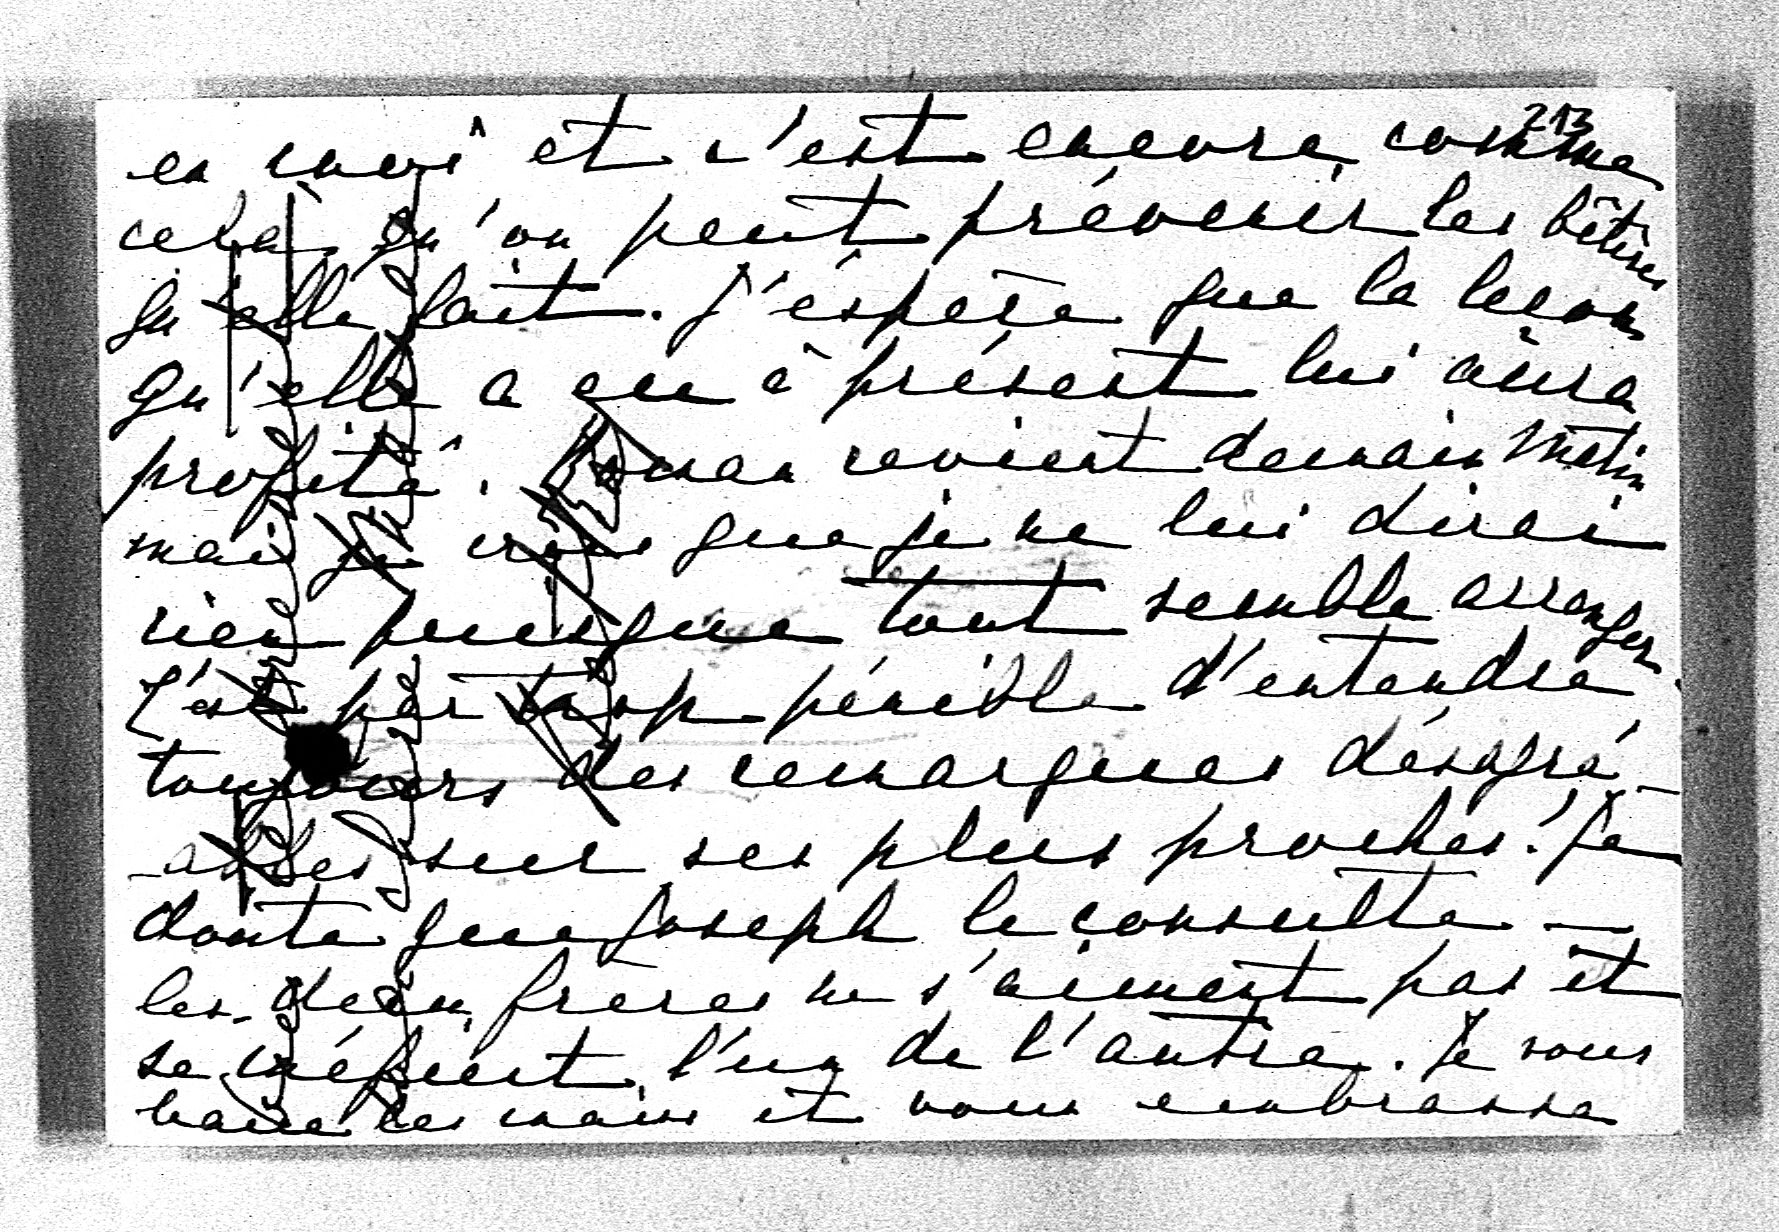 213
en moi et c'est encore comme
cela qu'on peut prévenir les bêtises
qu'elle fait. J'espère que la leçon
qu'elle a eu à présent lui aura
profité. Roman revient demain matin
mais je crois que je ne lui dirai
rien puisque tout semble arranger.
C'est par trop pénible d'entendre
toujours des remarques désagré-
-ables sur ses plus proches! Je
doute que Joseph le consulte —
les deux frères ne s'aiment pas et
se méfient l'un de l'autre. Je vous
baise les mains et vous embrasse